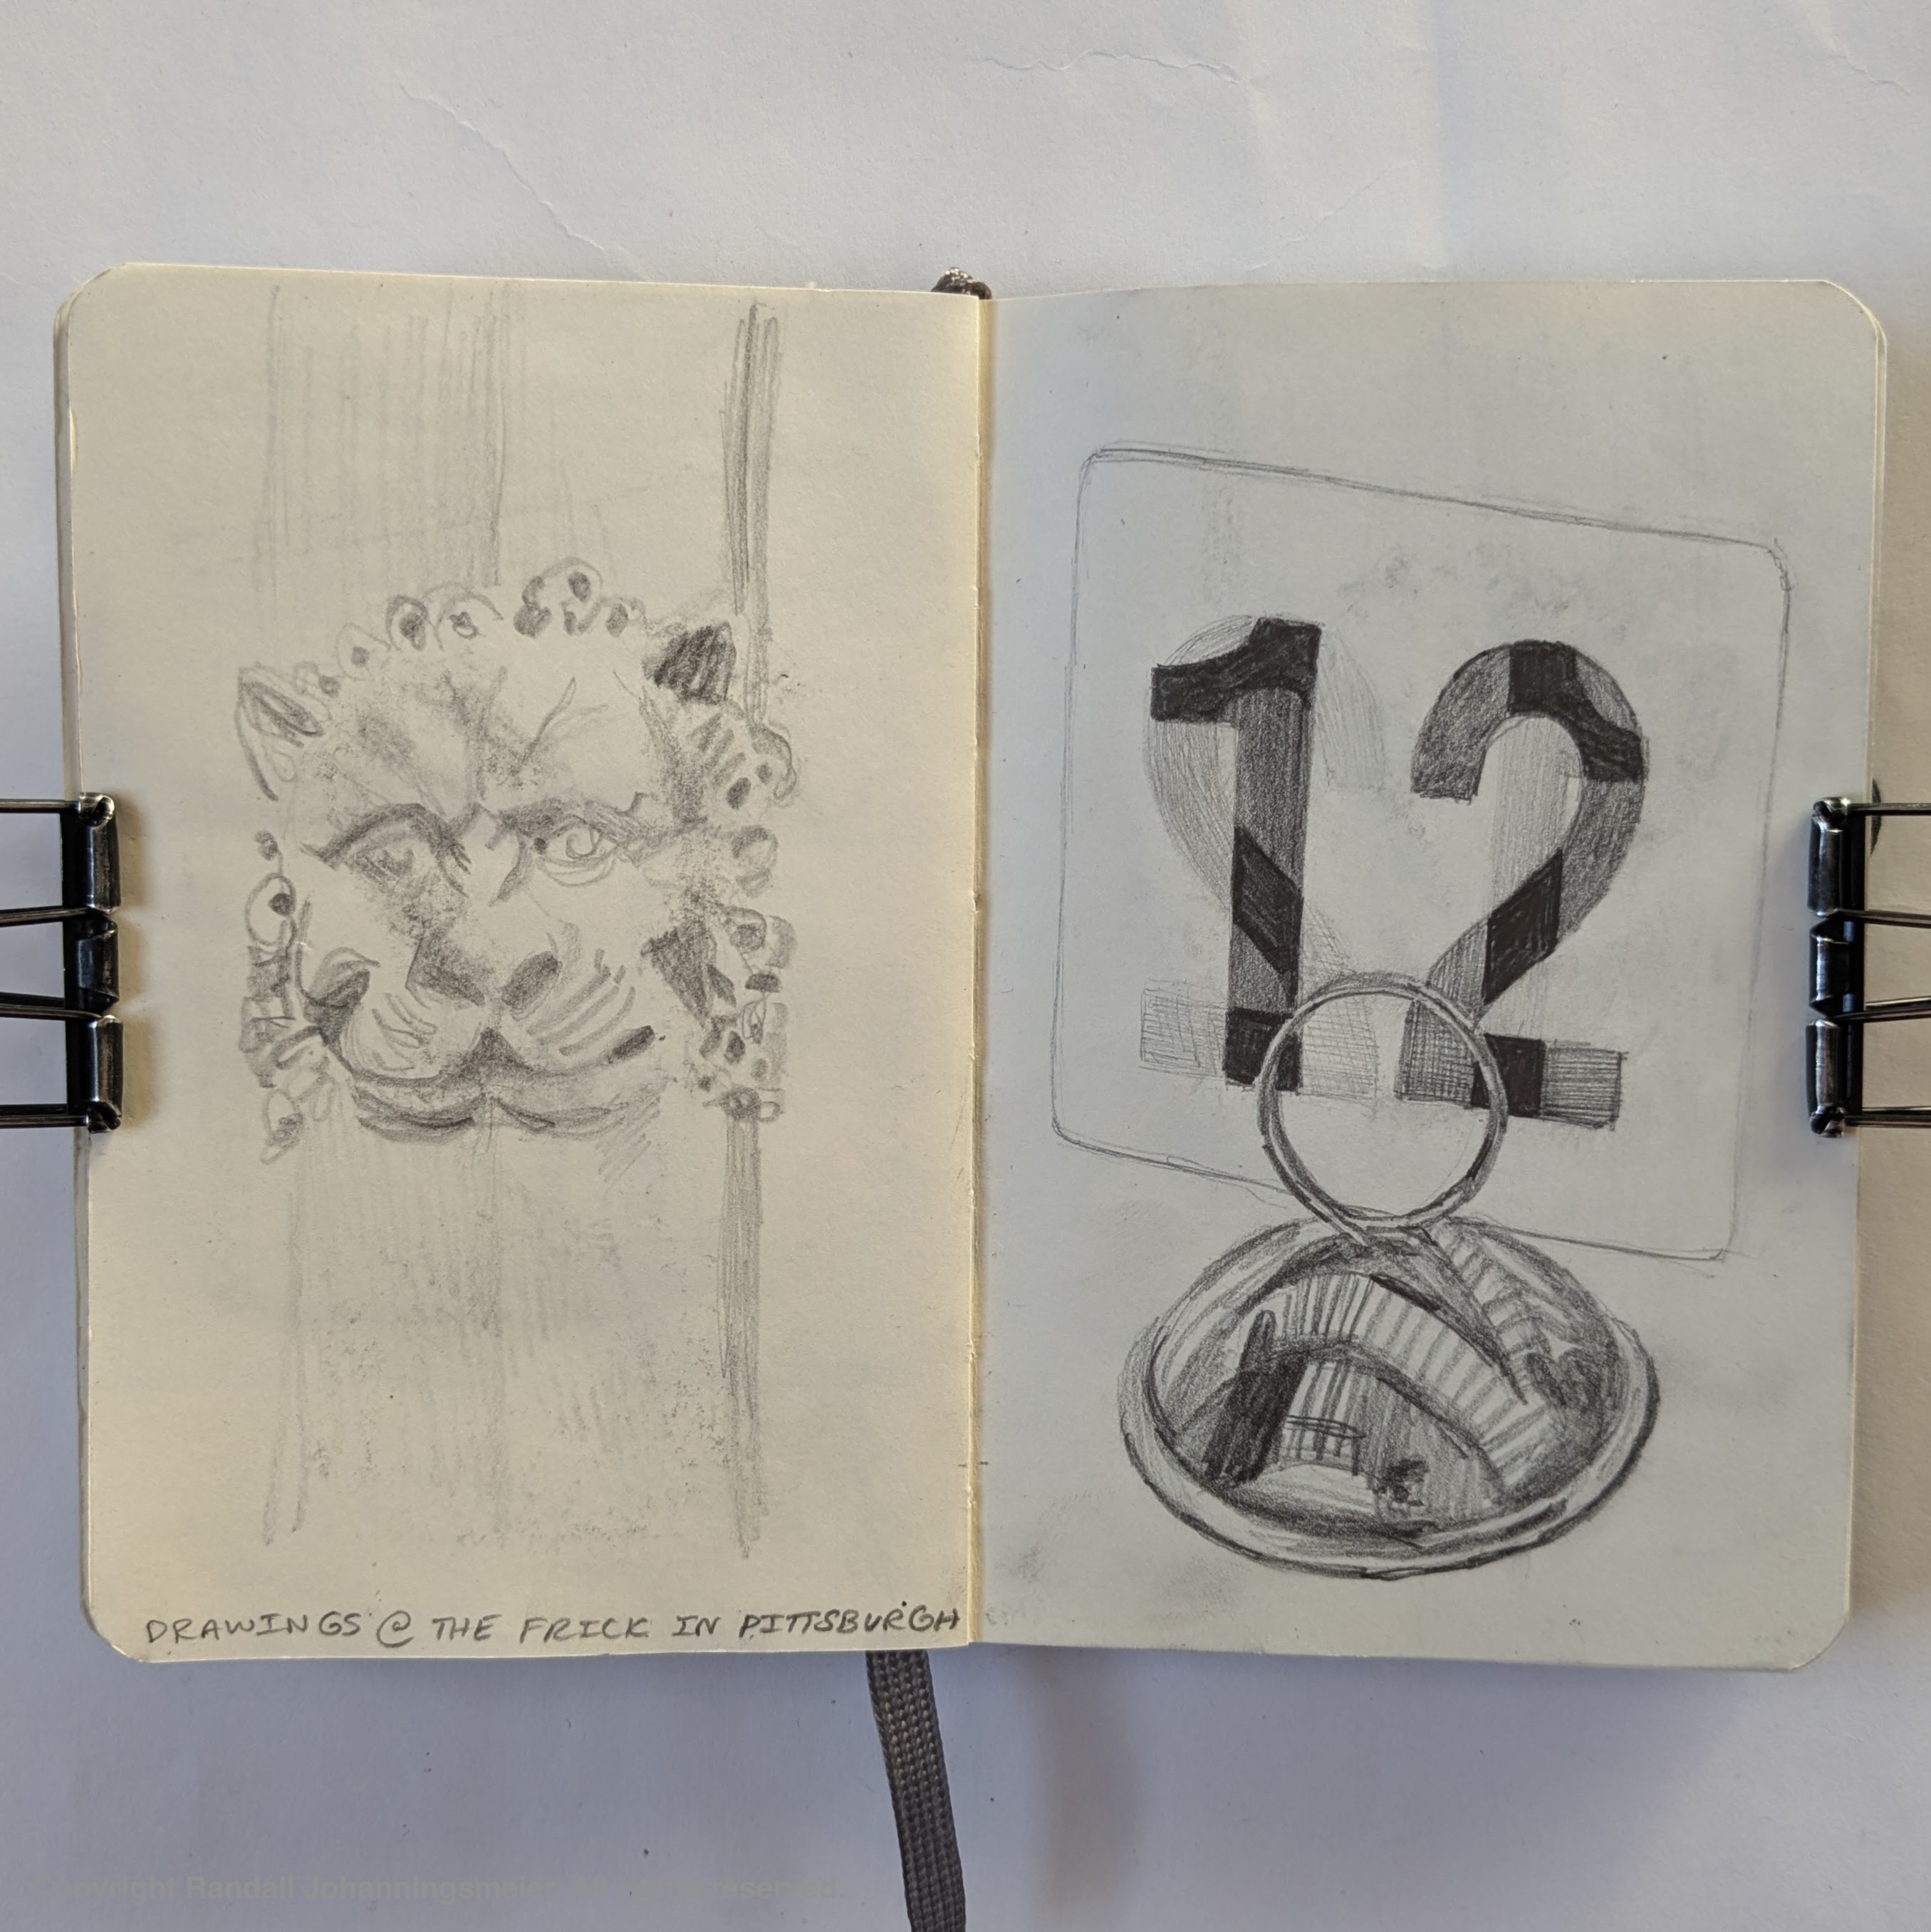 DRAWINGS @ THE FRICK IN PITTSBURGH
12
Copyright Randall Johanningsmeier. All rights reserved.